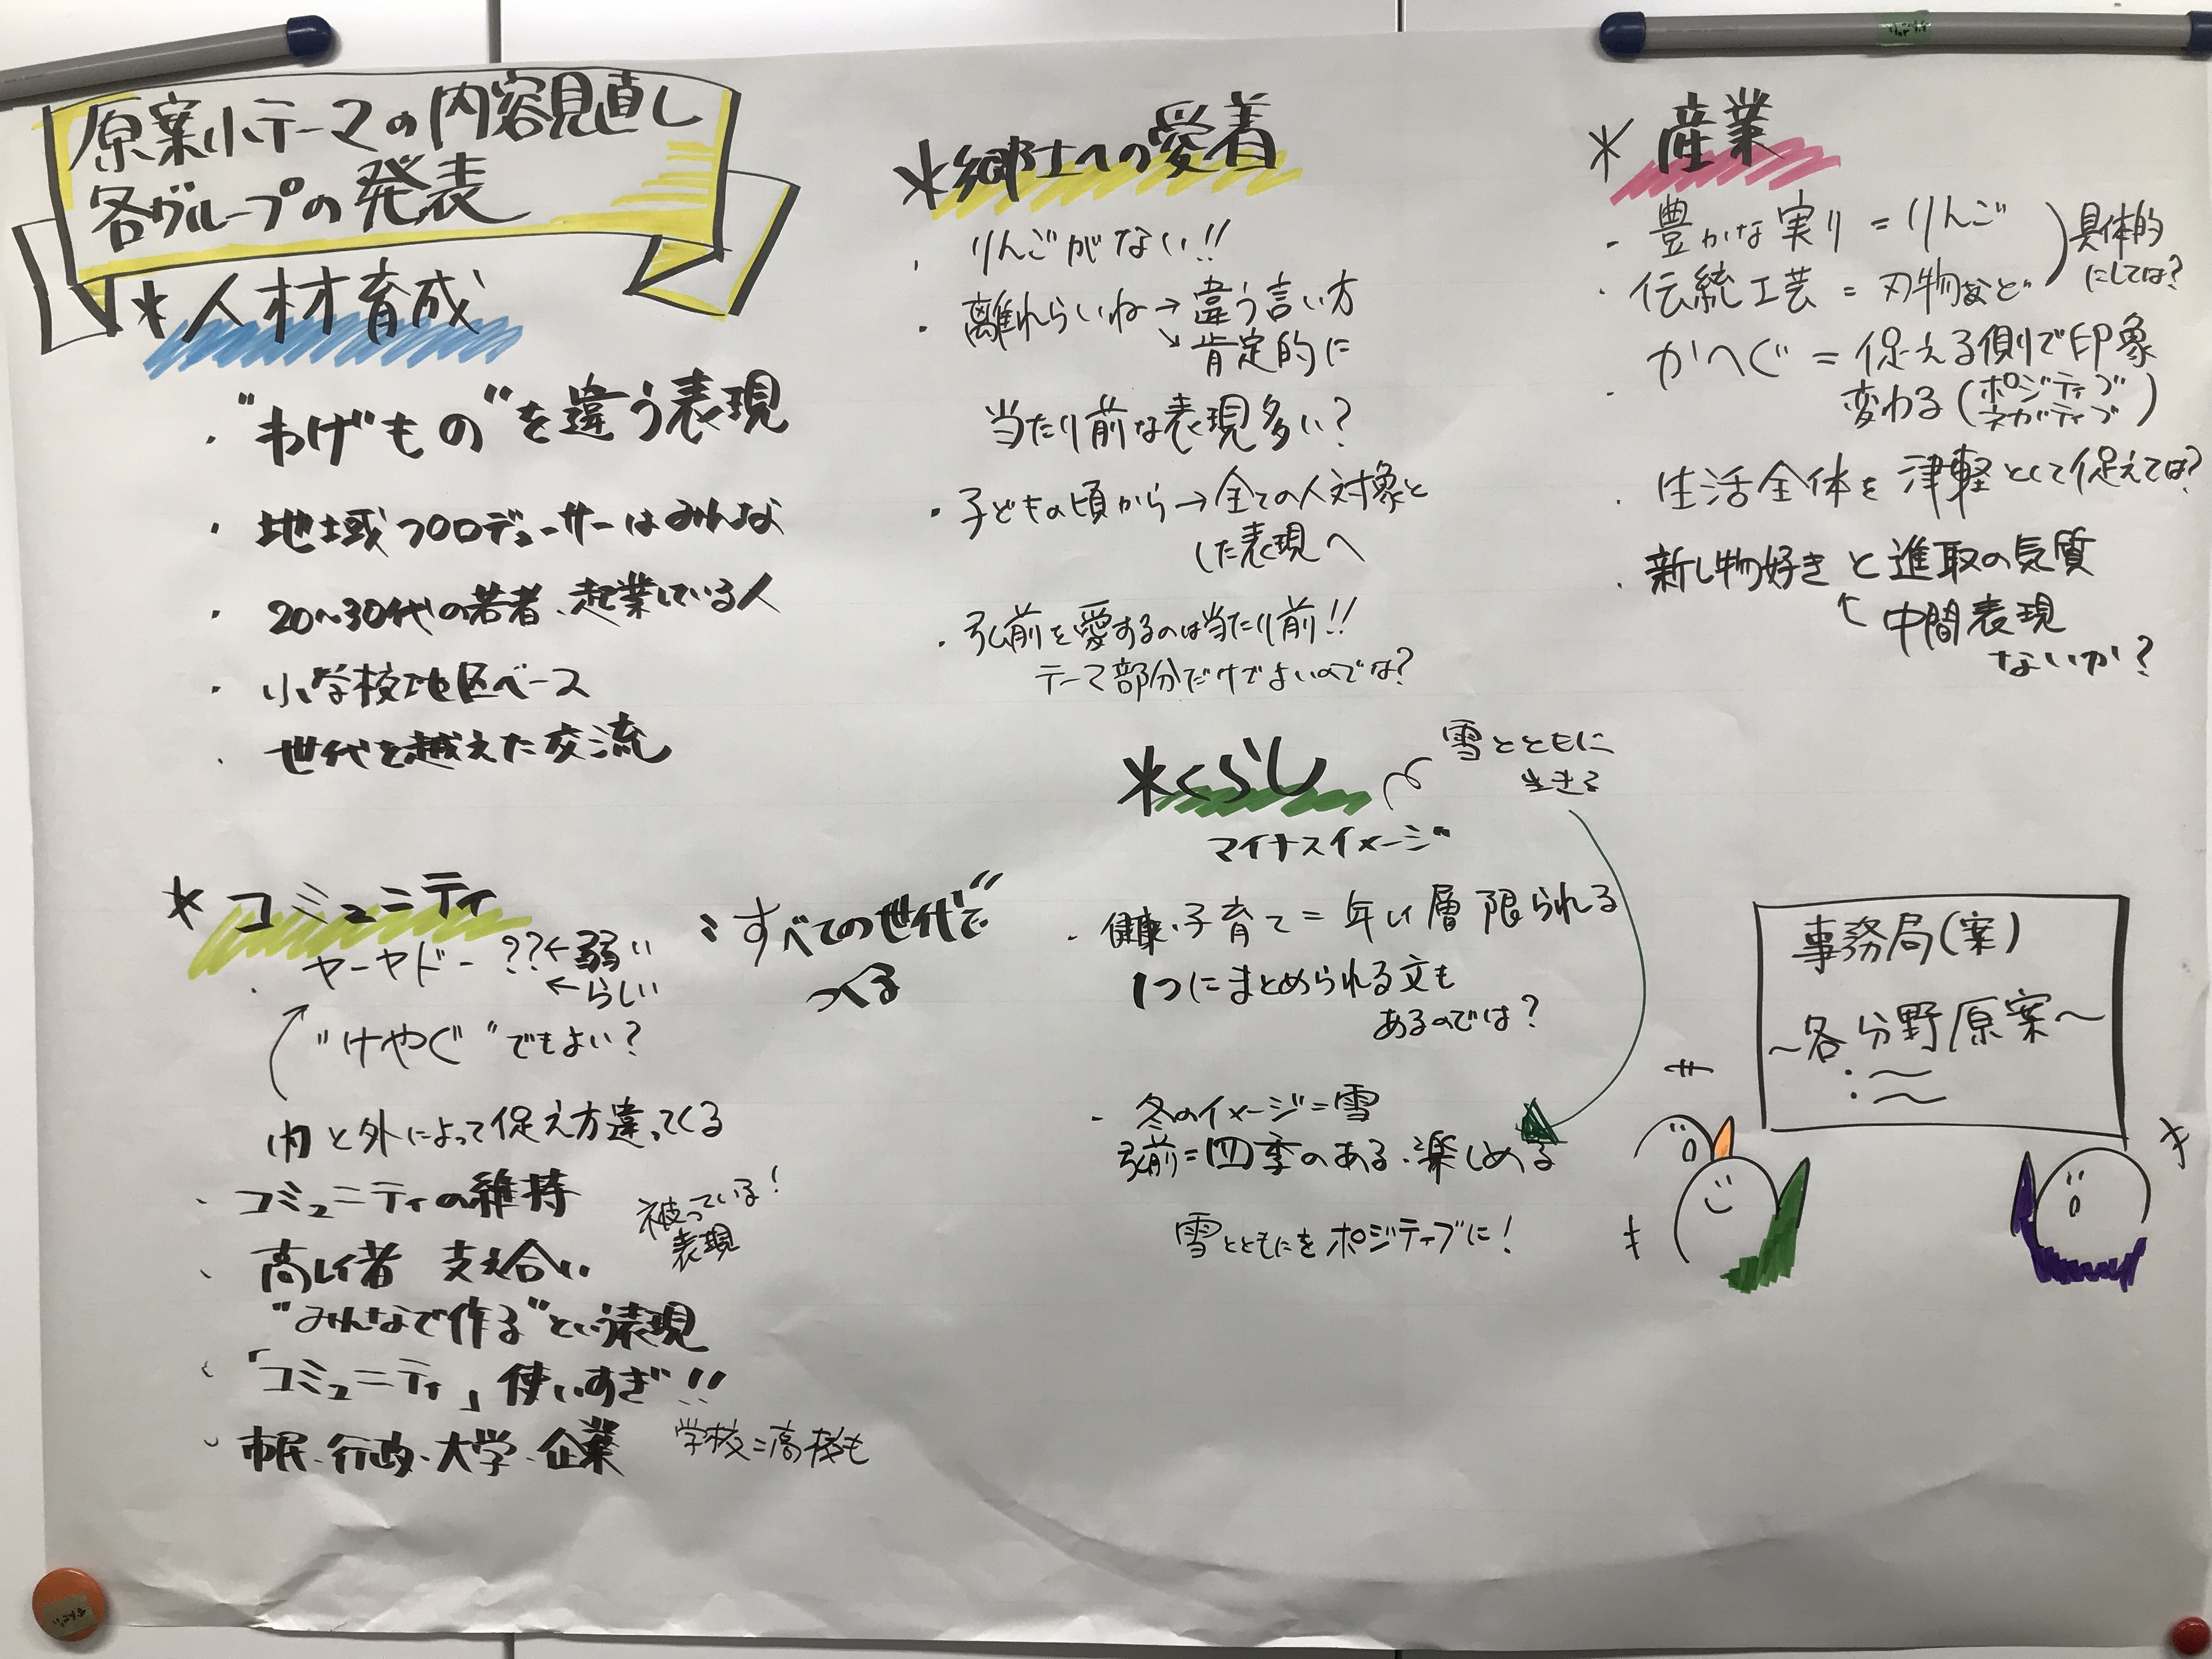 原案小テーマの内容見直し
各グループの発表
*人材育成
・"わげもの"を違う表現
・地域プロデューサーはみんな
・20〜30代の若者、起業している人
・小学校地区ベース
・世代を越えた交流
*コミュニティ
・ヤーヤドー??←弱い
←らしい
"けやぐ"でもよい?
内と外によって捉え方違ってくる
・コミュニティの維持
・高レイ者 支え合い
被っている!
表現
"みんなで作る"という表現
・「コミュニティ」使いすぎ!!
・市民・行政・大学・企業 学校=高校も
:すべての世代で"
つくる
*郷土への愛着
・りんごがない!!
・離れらいね→違う言い方
↘肯定的に
当たり前な表現多い?
・子どもの頃から→全ての人対象と
した表現へ
・弘前を愛するのは当たり前!!
テーマ部分だけでよいのでは?
*くらし
雪とともに
生きる
マイナスイメージ
・健康・子育て=年レイ層限られる
1つにまとめられる文も
あるのでは?
・冬のイメージ=雪
弘前=四季のある・楽しめる
雪とともにをポジティブに!
*産業
・豊かな実り=りんご
・伝統工芸=刃物など
具体的
にしては?
・かへぐ=捉える側で印象
変わる(ポジティブ
ネガティブ)
・生活全体を津軽として捉えては?
・新し物好きと進取の気質
↖中間表現
ないか?
事務局(案)
〜各分野原案〜
:〜
:〜